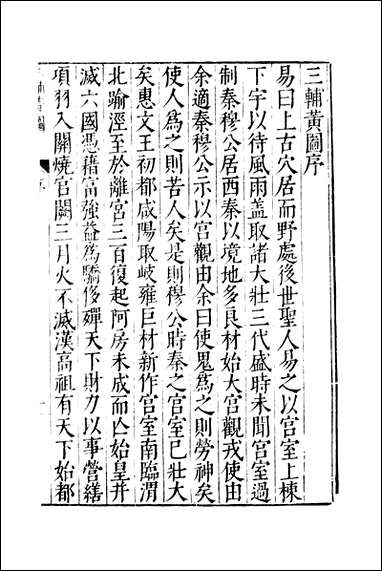 三輔黃圖序
易曰上古穴居而野處後世聖人易之以宮室上棟
下宇以待風雨蓋取諸大壯三代盛時未聞宮室過
制秦穆公居西秦以境地多良材始大宮觀戎使由
余適秦穆公示以宮觀由余曰使鬼為之則勞神矣
使人為之則苦人矣是則穆公時秦之宮室已壯大
矣惠文王初都咸陽取岐雍巨材新作宮室南臨渭
北踰涇至於離宮三百復起阿房未成而亡始皇并
滅六國憑藉富強益為驕侈殫天下財力以事營繕
項羽入關燒宮闕三月火不滅漢高祖有天下始都